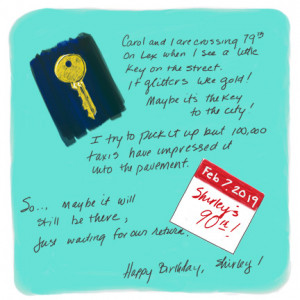 Carol and I are crossing 79th
on Lex when I see a little
key on the street.
it glitters like gold!
Maybe it's the key
to the city!
I try to pick it up but 100,000
taxis have impressed it
into the pavement.
Feb 7, 2019
Shirley's
90th!
So... maybe it will
still be there,
just waiting for our return.
Happy Birthday, Shirley!